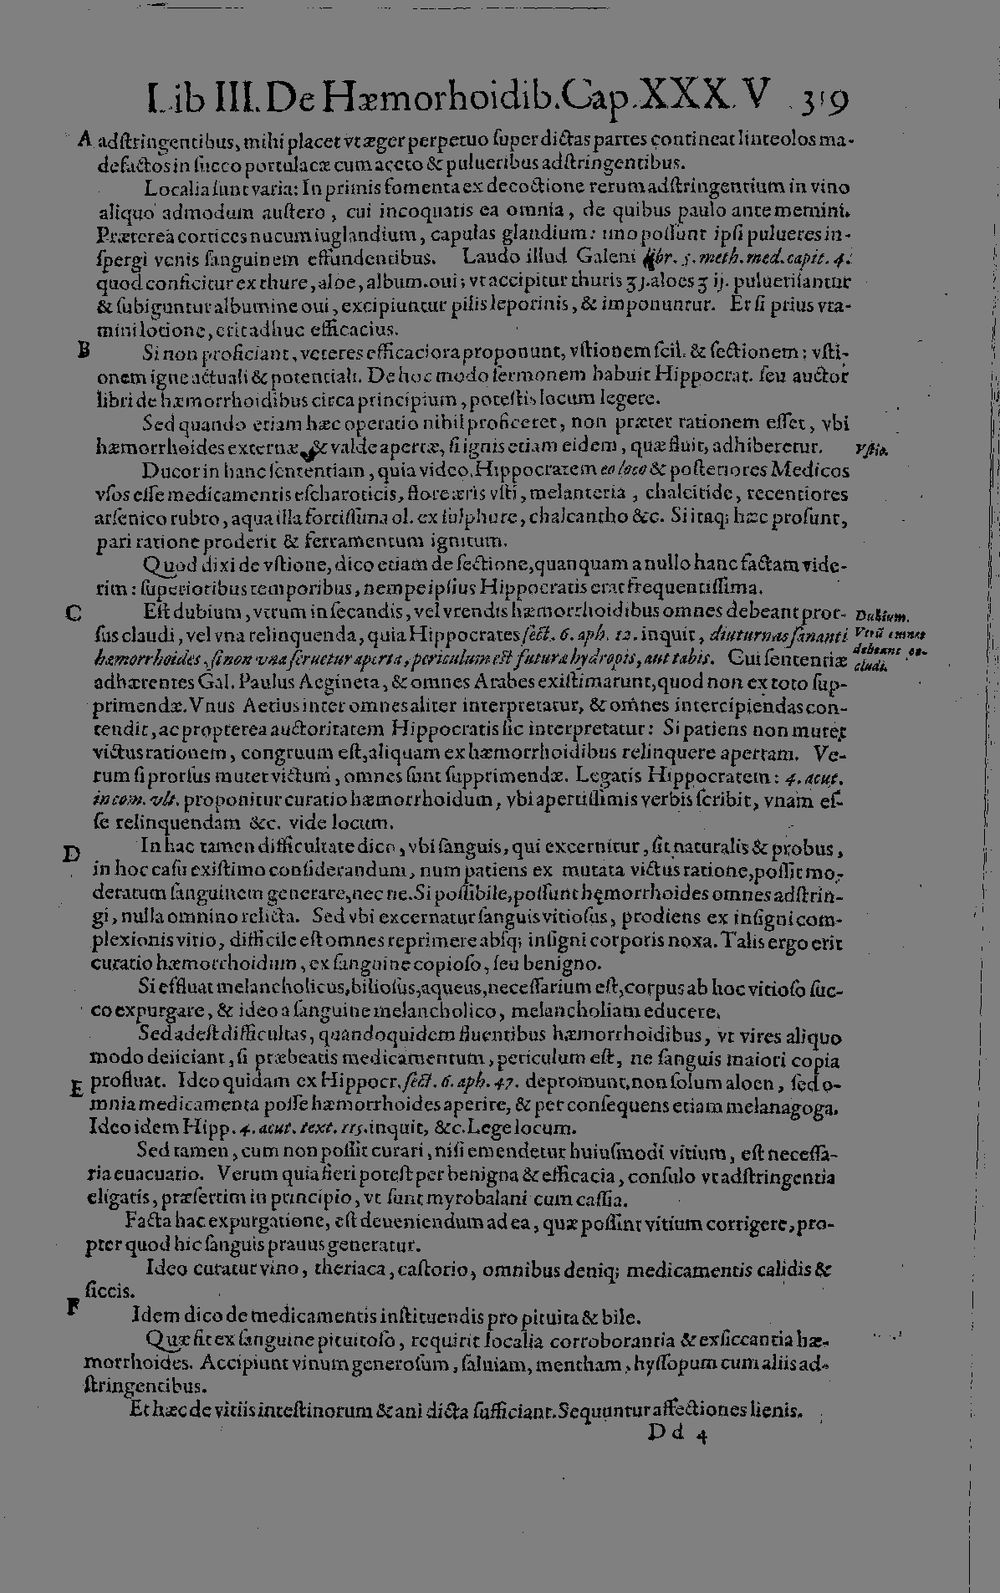 Lib III. De Hæmorhoidib. Cap. XXX.V 319
A adſtringentibus, mihi placet vt æger perpetuo ſuper dictas partes contineat linteolos ma-
defactos in ſucco portulacæ cum aceto & pulueribus adſtringentibus.
Localia ſunt varia: In primis fomenta ex decoctione rerum adſtringentium in vino
aliquo admodum auſtero, cui incoquatis ea omnia, de quibus paulo ante memini.
Præterea cortices nucum iuglandium, capulas glandium: imo poſſunt ipſi pulueres in-
ſpergi venis ſanguinem effundentibus. Laudo illud Galeni libr. 5. meth. med. capit. 4.
quod conficitur ex thure, aloe, album. oui; vt accipitur thuris ʒ j. aloes ʒ ij. pulueriſantur
& ſubiguntur albumine oui, excipiuntur pilis leporinis, & imponuntur. Et ſi prius vta-
mini lotione, erit adhuc efficacius.
B Si non proficiant, veteres efficaciora proponunt, vſtionem ſcil. & ſectionem: vſti-
onem igne actuali & potentiali. De hoc modo ſermonem habuit Hippocrat. ſeu auctor
libri de hæmorrhoidibus circa principium, poteſtis locum legere.
Sed quando etiam hæc operatio nihil proficeret, non præter rationem eſſet, vbi
hæmorrhoides externæ & valde apertæ, ſi ignis etiam eidem, quæ fluit, adhiberetur. Vſtio.
Ducor in hanc ſententiam, quia video, Hippocratem eo loco & poſteriores Medicos
vſos eſſe medicamentis eſcharoticis, flore æris vſti, melanteria, chalcitide, recentiores
arſenico rubro, aqua illa fortiſſima ol. ex ſulphure, chalcantho &c. Si itaq; hæc proſunt,
pari ratione proderit & ferramentum ignitum.
Quod dixi de vſtione, dico etiam de ſectione, quanquam a nullo hanc factam vide-
rim: ſuperioribus temporibus, nempe ipſius Hippocratis erat frequentiſſima.
C Eſt dubium, vtrum in ſecandis, vel vrendis hæmorrhoidibus omnes debeant pror- Dubium.
ſus claudi, vel vna relinquenda, quia Hippocrates ſect. 6. aph. 12. inquit, diuturnas ſananti Vtrū omnes
hæmorrhoides, ſi non vna ſeruetur aperta, periculum eſt futura hydropis, aut tabis. Cui ſententiæ debeant oc-
cludi.
adhærentes Gal. Paulus Aegineta, & omnes Arabes exiſtimarunt, quod non ex toto ſup-
primendæ. Vnus Aetius inter omnes aliter interpretatur, & omnes intercipiendas con-
tendit, ac propterea auctoritatem Hippocratis ſic interpretatur: Si patiens non mutet
victus rationem, congruum eſt, aliquam ex hæmorrhoidibus relinquere apertam. Ve-
rum ſi prorſus mutet victum, omnes ſunt ſupprimendæ. Legatis Hippocratem: 4. acut.
in com. vlt. proponitur curatio hæmorrhoidum, vbi apertiſſimis verbis ſcribit, vnam eſ-
ſe relinquendam &c. vide locum.
D In hac tamen difficultate dico, vbi ſanguis, qui excernitur, ſit naturalis & probus,
in hoc caſu exiſtimo conſiderandum, num patiens ex mutata victus ratione, poſſit mo-
deratum ſanguinem generare, nec ne. Si poſſibile, poſſunt hęmorrhoides omnes adſtrin-
gi, nulla omnino relicta. Sed vbi excernatur ſanguis vitioſus, prodiens ex inſigni com-
plexionis vitio, difficile eſt omnes reprimere abſq; inſigni corporis noxa. Talis ergo erit
curatio hæmorrhoidum, ex ſanguine copioſo, ſeu benigno.
Si effluat melancholicus, bilioſus, aqueus, neceſſarium eſt, corpus ab hoc vitioſo ſuc-
co expurgare, & ideo a ſanguine melancholico, melancholiam educere.
Sed adeſt difficultas, quandoquidem fluentibus hæmorrhoidibus, vt vires aliquo
modo deiiciant, ſi præbeatis medicamentum, periculum eſt, ne ſanguis maiori copia
E profluat. Ideo quidam ex Hippocr. ſect. 6. aph. 47. depromunt, non ſolum aloen, ſed o-
mnia medicamenta poſſe hæmorrhoides aperire, & per conſequens etiam melanagoga.
Ideo idem Hipp. 4. acut. text. 115. inquit, &c. Lege locum.
Sed tamen, cum non poſſit curari, niſi emendetur huiuſmodi vitium, eſt neceſſa-
ria euacuatio. Verum quia fieri poteſt per benigna & efficacia, conſulo vt adſtringentia
eligatis, præſertim in principio, vt ſunt myrobalani cum caſſia.
Facta hac expurgatione, eſt deueniendum ad ea, quæ poſſint vitium corrigere, pro-
pter quod hic ſanguis prauus generatur.
Ideo curatur vino, theriaca, caſtorio, omnibus deniq; medicamentis calidis &
ſiccis.
F Idem dico de medicamentis inſtituendis pro pituita & bile.
Quæ fit ex ſanguine pituitoſo, requirit localia corroborantia & exſiccantia hæ-
morrhoides. Accipiunt vinum generoſum, ſaluiam, mentham, hyſſopum cum aliis ad-
ſtringentibus.
Et hæc de vitiis inteſtinorum & ani dicta ſufficiant. Sequuntur affectiones lienis.
D d 4